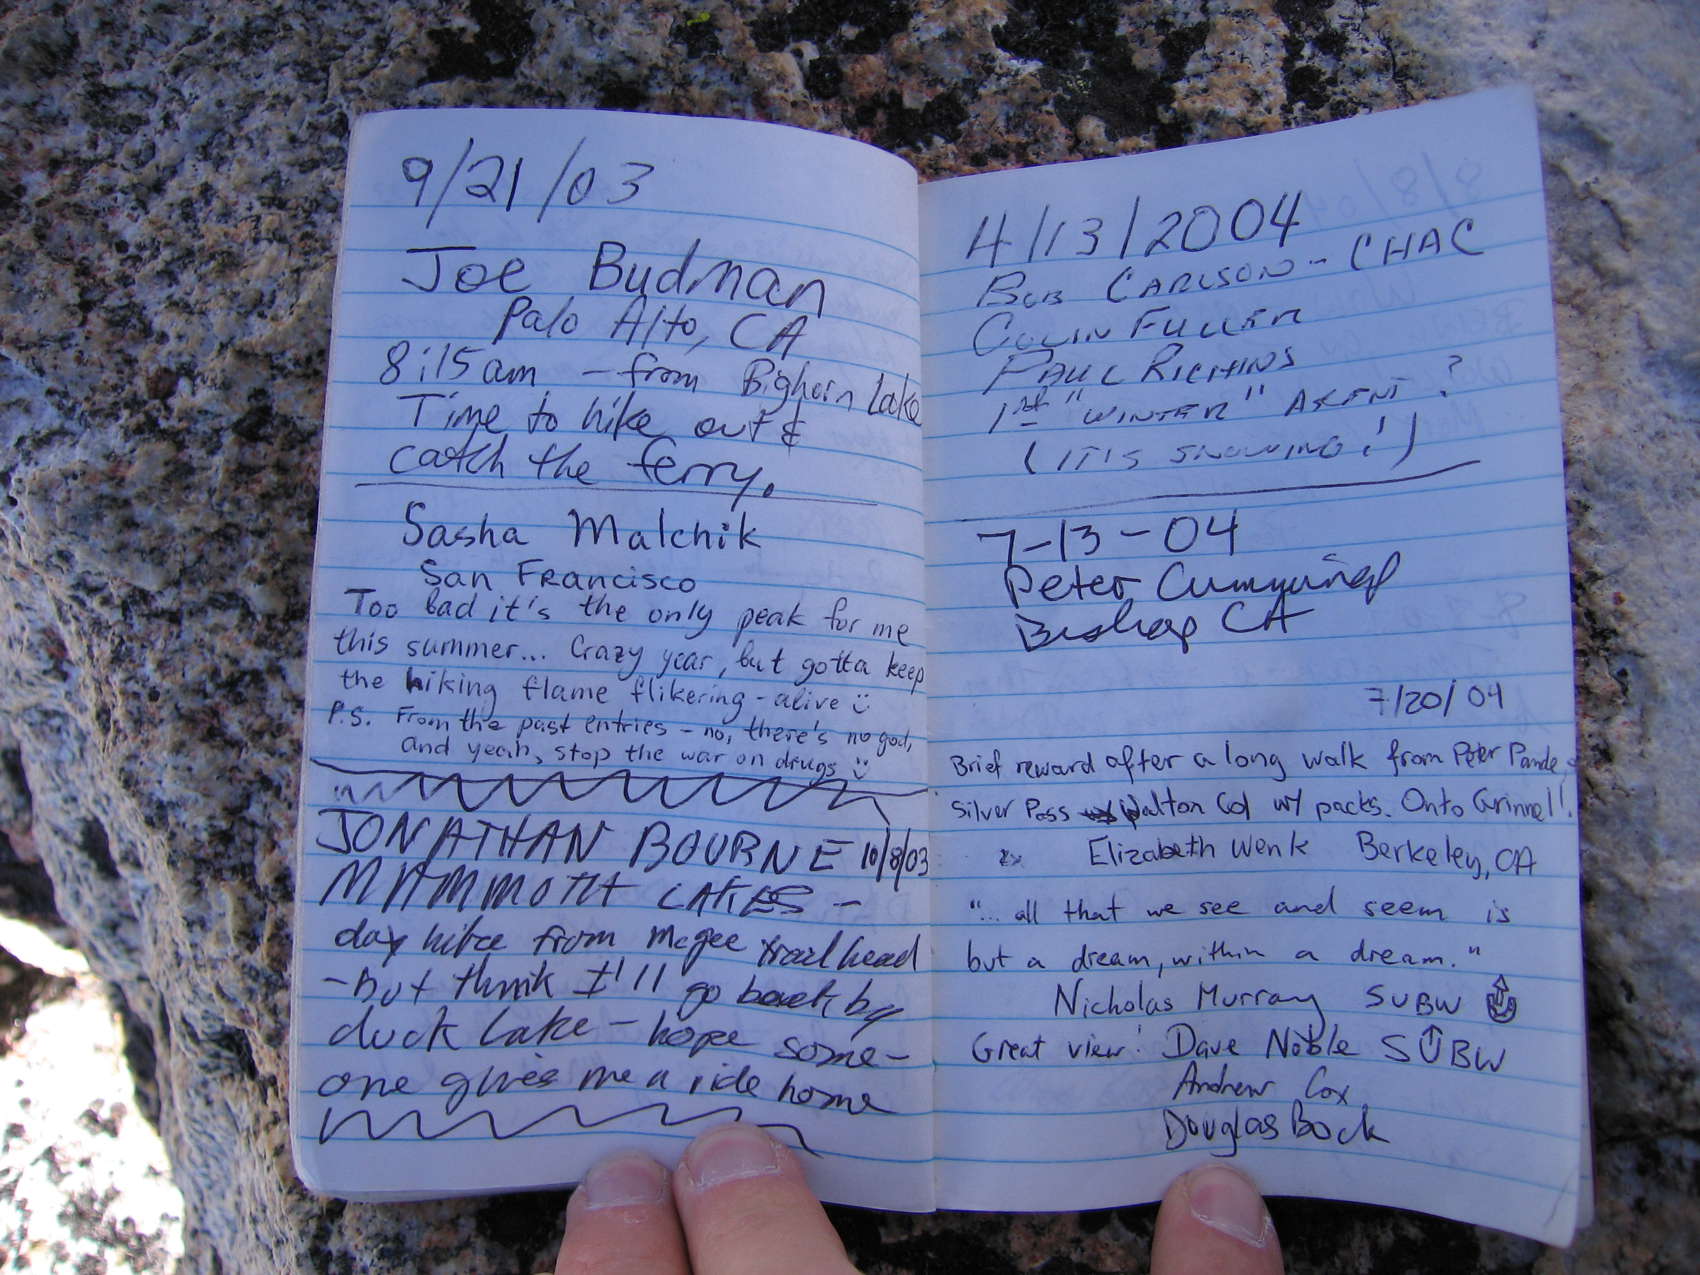 9/21/03
Joe Budman
Palo Alto, CA
8:15am - from Bighorn Lake
Time to hike out &
catch the ferry.
Sasha Malchik
San Francisco
Too bad it's the only peak for me
this summer... Crazy year, but gotta keep
the hiking flame flikering - alive
P.S. From the past entries - no, there's no god,
and yeah, stop the war on drugs
JONATHAN BOURNE 10/8/03
MAMMOTH LAKES -
day hike from McGee trailhead
- But think I'll go back by
duck Lake - hope some-
one gives me a ride home
4/13/2004
BOB CARLSON - CHAC
COLIN FULLER
PAUL RICHINS
1st "WINTER" ASCENT?
(IT'S SNOWING!)
7-13-04
Peter
Bishop CA
7/20/04
Brief reward after a long walk from Peter Pande,
Silver Pass Walton Col w/ packs. Onto Grinnel!
Elizabeth Wenk Berkeley, CA
"... all that we see and seem is
but a dream, within a dream."
Nicholas Murray SUBW
Great view! Dave Noble SUBW
Andrew Cox
Douglas Bock